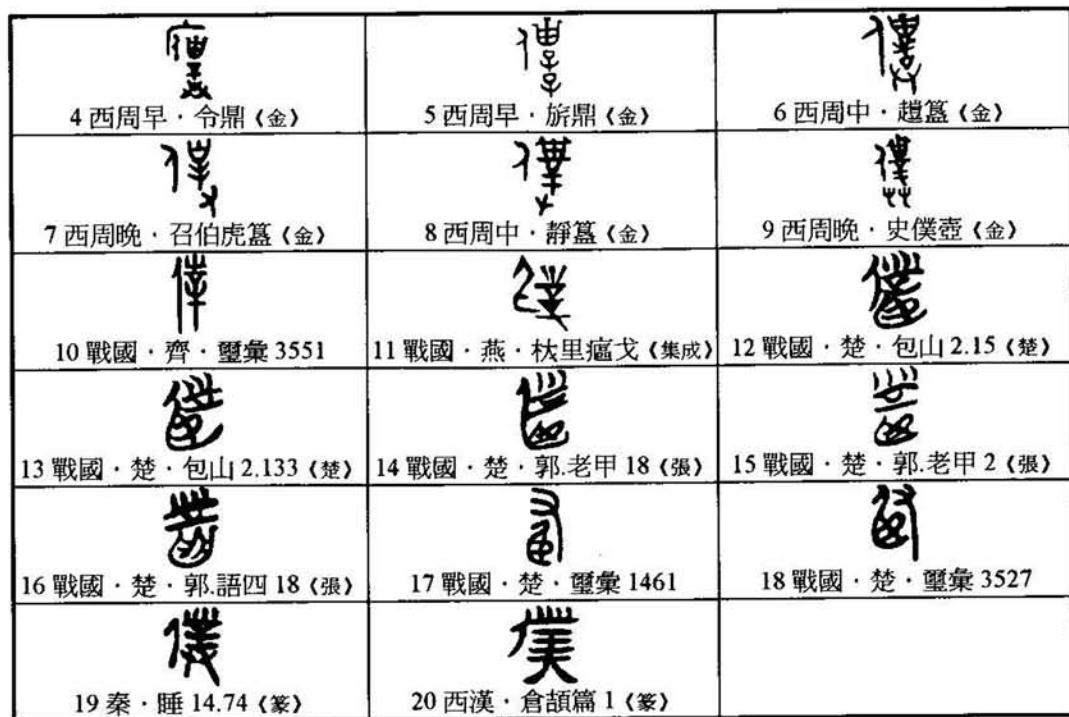 4 西周早·令鼎《金》
5 西周早·旂鼎《金》
6 西周中·趞簋《金》
7 西周晚·召伯虎簋《金》
8 西周中·靜簋《金》
9 西周晚·史僕壺《金》
10 戰國·齊·璽彙 3551
11 戰國·燕·杕里瘟戈《集成》
12 戰國·楚·包山 2.15《楚》
13 戰國·楚·包山 2.133《楚》
14 戰國·楚·郭.老甲 18《張》
15 戰國·楚·郭.老甲 2《張》
16 戰國·楚·郭.語四 18《張》
17 戰國·楚·璽彙 1461
18 戰國·楚·璽彙 3527
19 秦·睡 14.74《篆》
20 西漢·倉頡篇 1《篆》